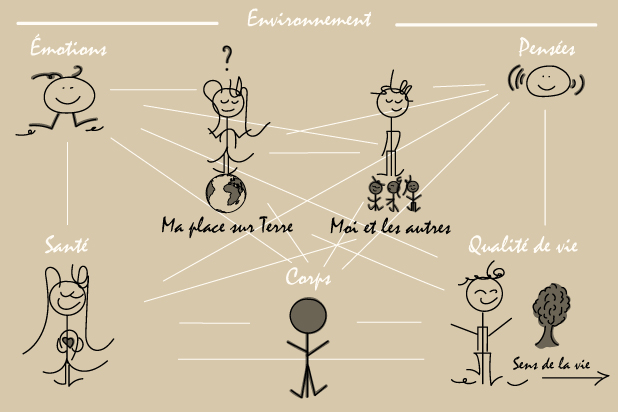 Environnement
Émotions
Pensées
?
Ma place sur Terre
Moi et les autres
Santé
Qualité de vie
Corps
Sens de la vie